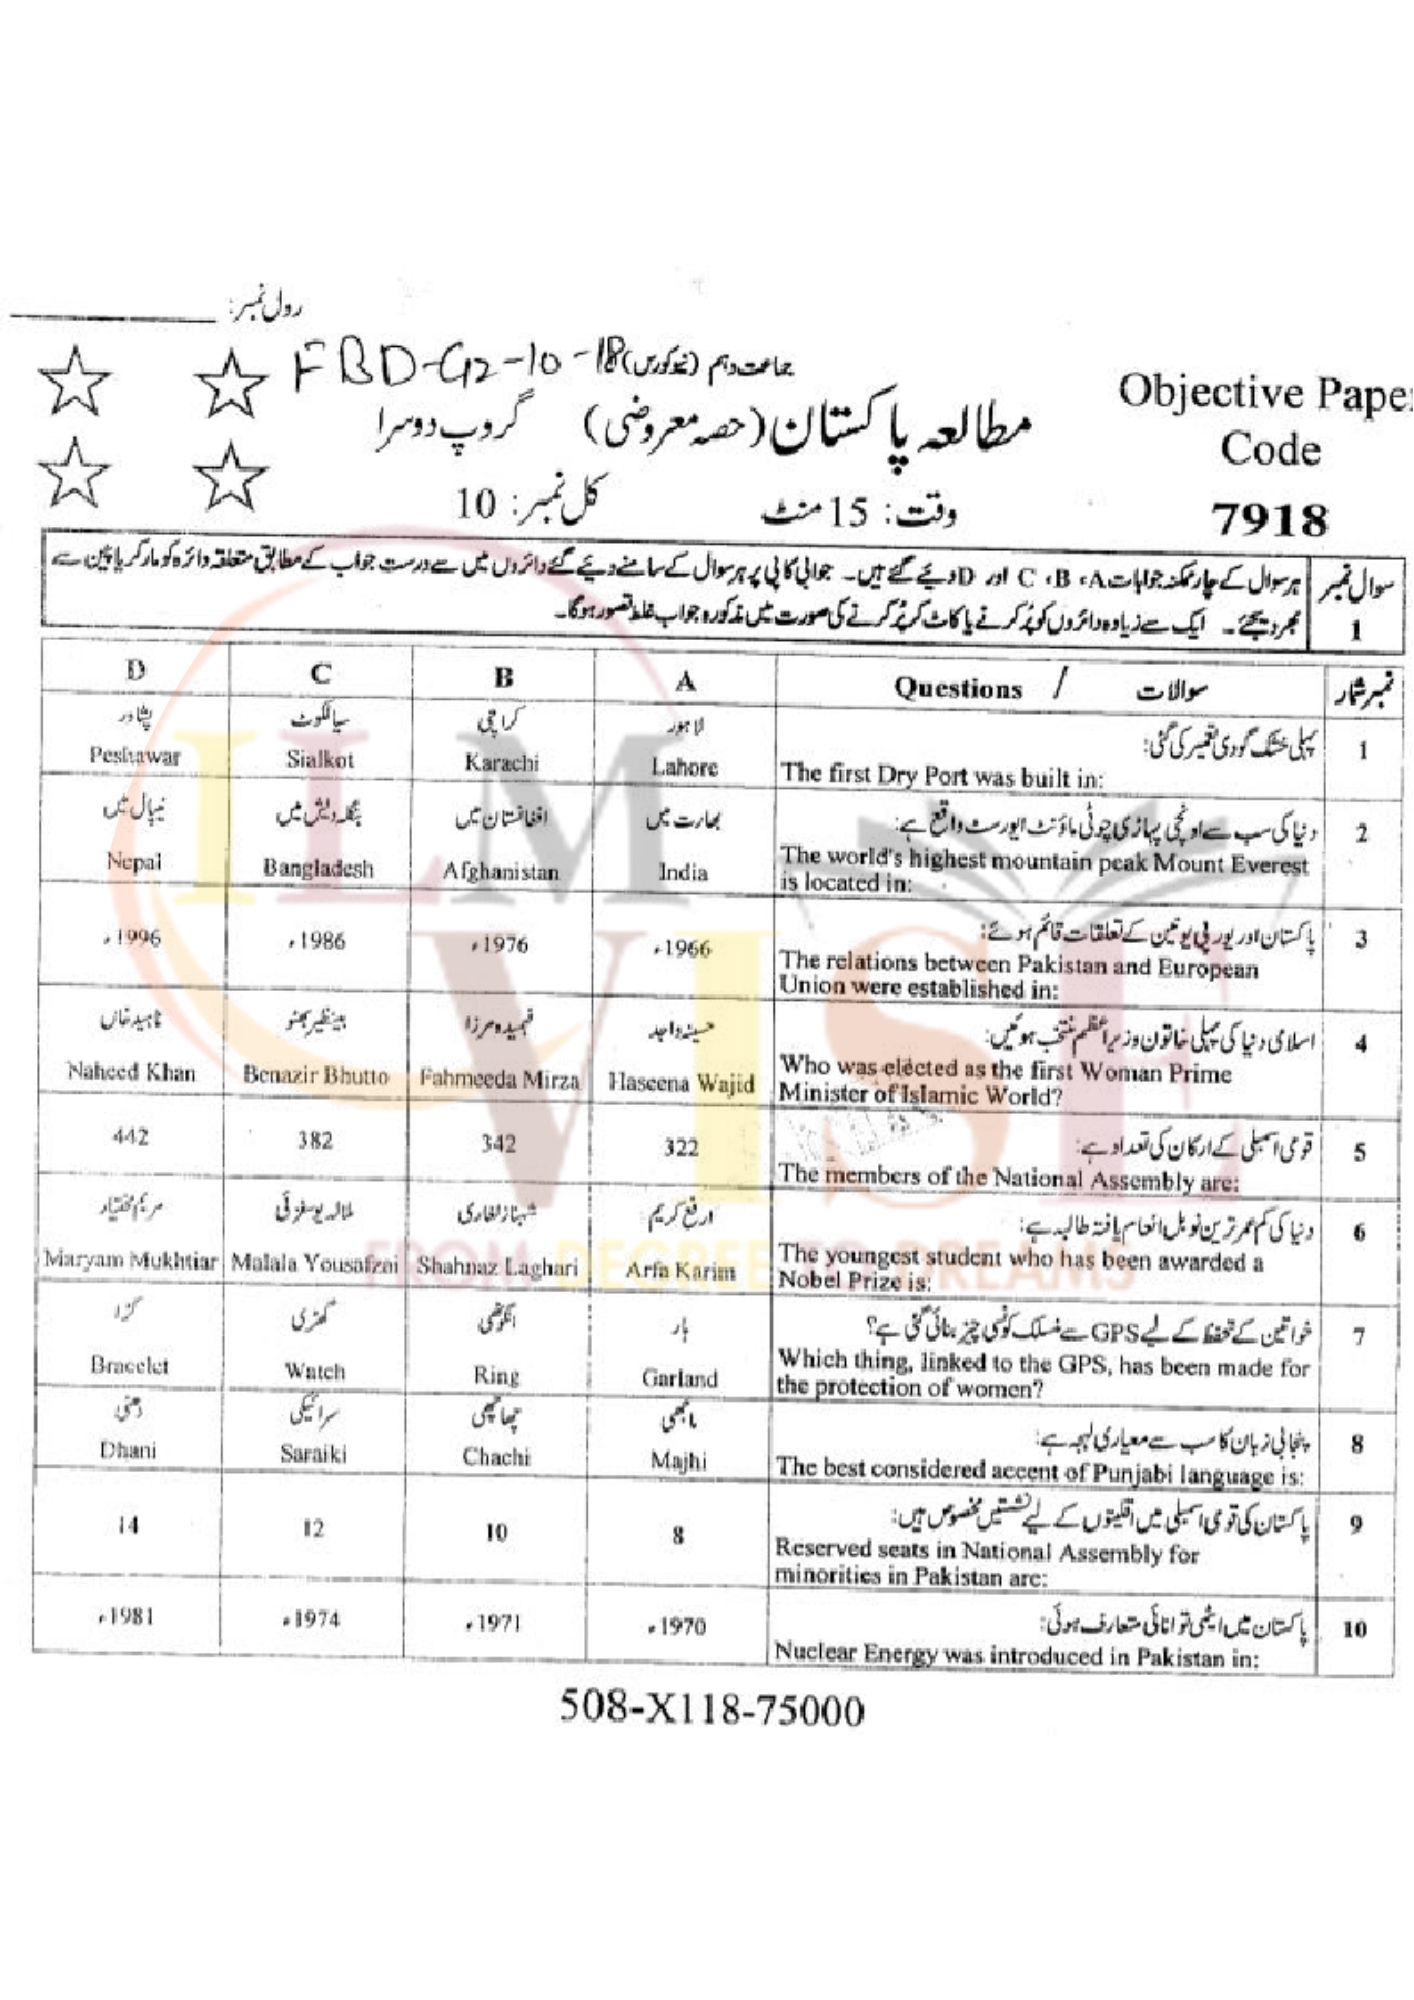 رول نمبر:
FBD-G2-10-18
جماعت دہم (نیو کورس)
Objective Paper
Code
7918
مطالعہ پاکستان (حصہ معروضی) گروپ دوسرا
وقت: 15 منٹ کل نمبر: 10
سوال نمبر 1
ہر سوال کے چار ممکنہ جوابات A، B، C اور D دیئے گئے ہیں۔ جوابی کاپی پر ہر سوال کے سامنے دیئے گئے دائروں میں سے درست جواب کے مطابق متعلقہ دائرہ کو مارکر یا پین سے
بھر دیجئے۔ ایک سے زیادہ دائروں کو پُر کرنے یا کاٹ کر پُر کرنے کی صورت میں مذکورہ جواب غلط تصور ہوگا۔
نمبر شمار سوالات / Questions A B C D
1 پہلی خشک گودی تعمیر کی گئی:
The first Dry Port was built in:
لاہور کراچی سیالکوٹ پشاور
Lahore Karachi Sialkot Peshawar
2 دنیا کی سب سے اونچی پہاڑی چوٹی ماؤنٹ ایورسٹ واقع ہے:
The world's highest mountain peak Mount Everest
is located in:
بھارت میں افغانستان میں بنگلہ دیش میں نیپال میں
India Afghanistan Bangladesh Nepal
3 پاکستان اور یورپی یونین کے تعلقات قائم ہوئے:
The relations between Pakistan and European
Union were established in:
1966ء 1976ء 1986ء 1996ء
4 اسلامی دنیا کی پہلی خاتون وزیر اعظم منتخب ہوئیں:
Who was elected as the first Woman Prime
Minister of Islamic World?
حسینہ واجد فہمیدہ مرزا بینظیر بھٹو ناہید خاں
Haseena Wajid Fahmeeda Mirza Benazir Bhutto Naheed Khan
5 قومی اسمبلی کے ارکان کی تعداد ہے:
The members of the National Assembly are:
322 342 382 442
6 دنیا کی کم عمر ترین نوبل انعام یافتہ طالبہ ہے:
The youngest student who has been awarded a
Nobel Prize is:
ارفع کریم شہناز لغاری ملالہ یوسفزئی مریم مختیار
Arfa Karim Shahnaz Laghari Malala Yousafzai Maryam Mukhtiar
7 خواتین کے تحفظ کے لیے GPS سے منسلک کونسی چیز بنائی گئی ہے؟
Which thing, linked to the GPS, has been made for
the protection of women?
ہار انگوٹھی گھڑی کڑا
Garland Ring Watch Bracelet
8 پنجابی زبان کا سب سے معیاری لہجہ ہے:
The best considered accent of Punjabi language is:
ماجھی چھاچھی سرائیکی دھنی
Majhi Chachi Saraiki Dhani
9 پاکستان کی قومی اسمبلی میں اقلیتوں کے لیے نشستیں مخصوص ہیں:
Reserved seats in National Assembly for
minorities in Pakistan are:
8 10 12 14
10 پاکستان میں ایٹمی توانائی متعارف ہوئی:
Nuclear Energy was introduced in Pakistan in:
1970ء 1971ء 1974ء 1981ء
508-X118-75000
ILM
VISE
FROM DEGREE TO DREAMS